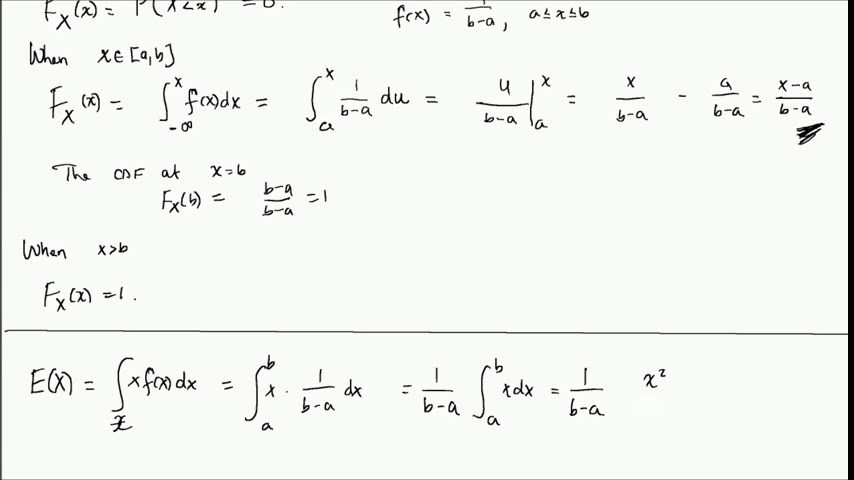 F_X(x) = P(X<x) = 0. f(x) = 1/(b-a), a≤x≤b
When x∈[a,b]
F_X(x) = ∫_{-∞}^{x} f(x)dx = ∫_{a}^{x} 1/(b-a) du = u/(b-a) |_{a}^{x} = x/(b-a) - a/(b-a) = (x-a)/(b-a)
The CDF at x=b
F_X(b) = (b-a)/(b-a) = 1
When x>b
F_X(x) = 1.
E(X) = ∫_{x} x f(x) dx = ∫_{a}^{b} x · 1/(b-a) dx = 1/(b-a) ∫_{a}^{b} x dx = 1/(b-a) x²